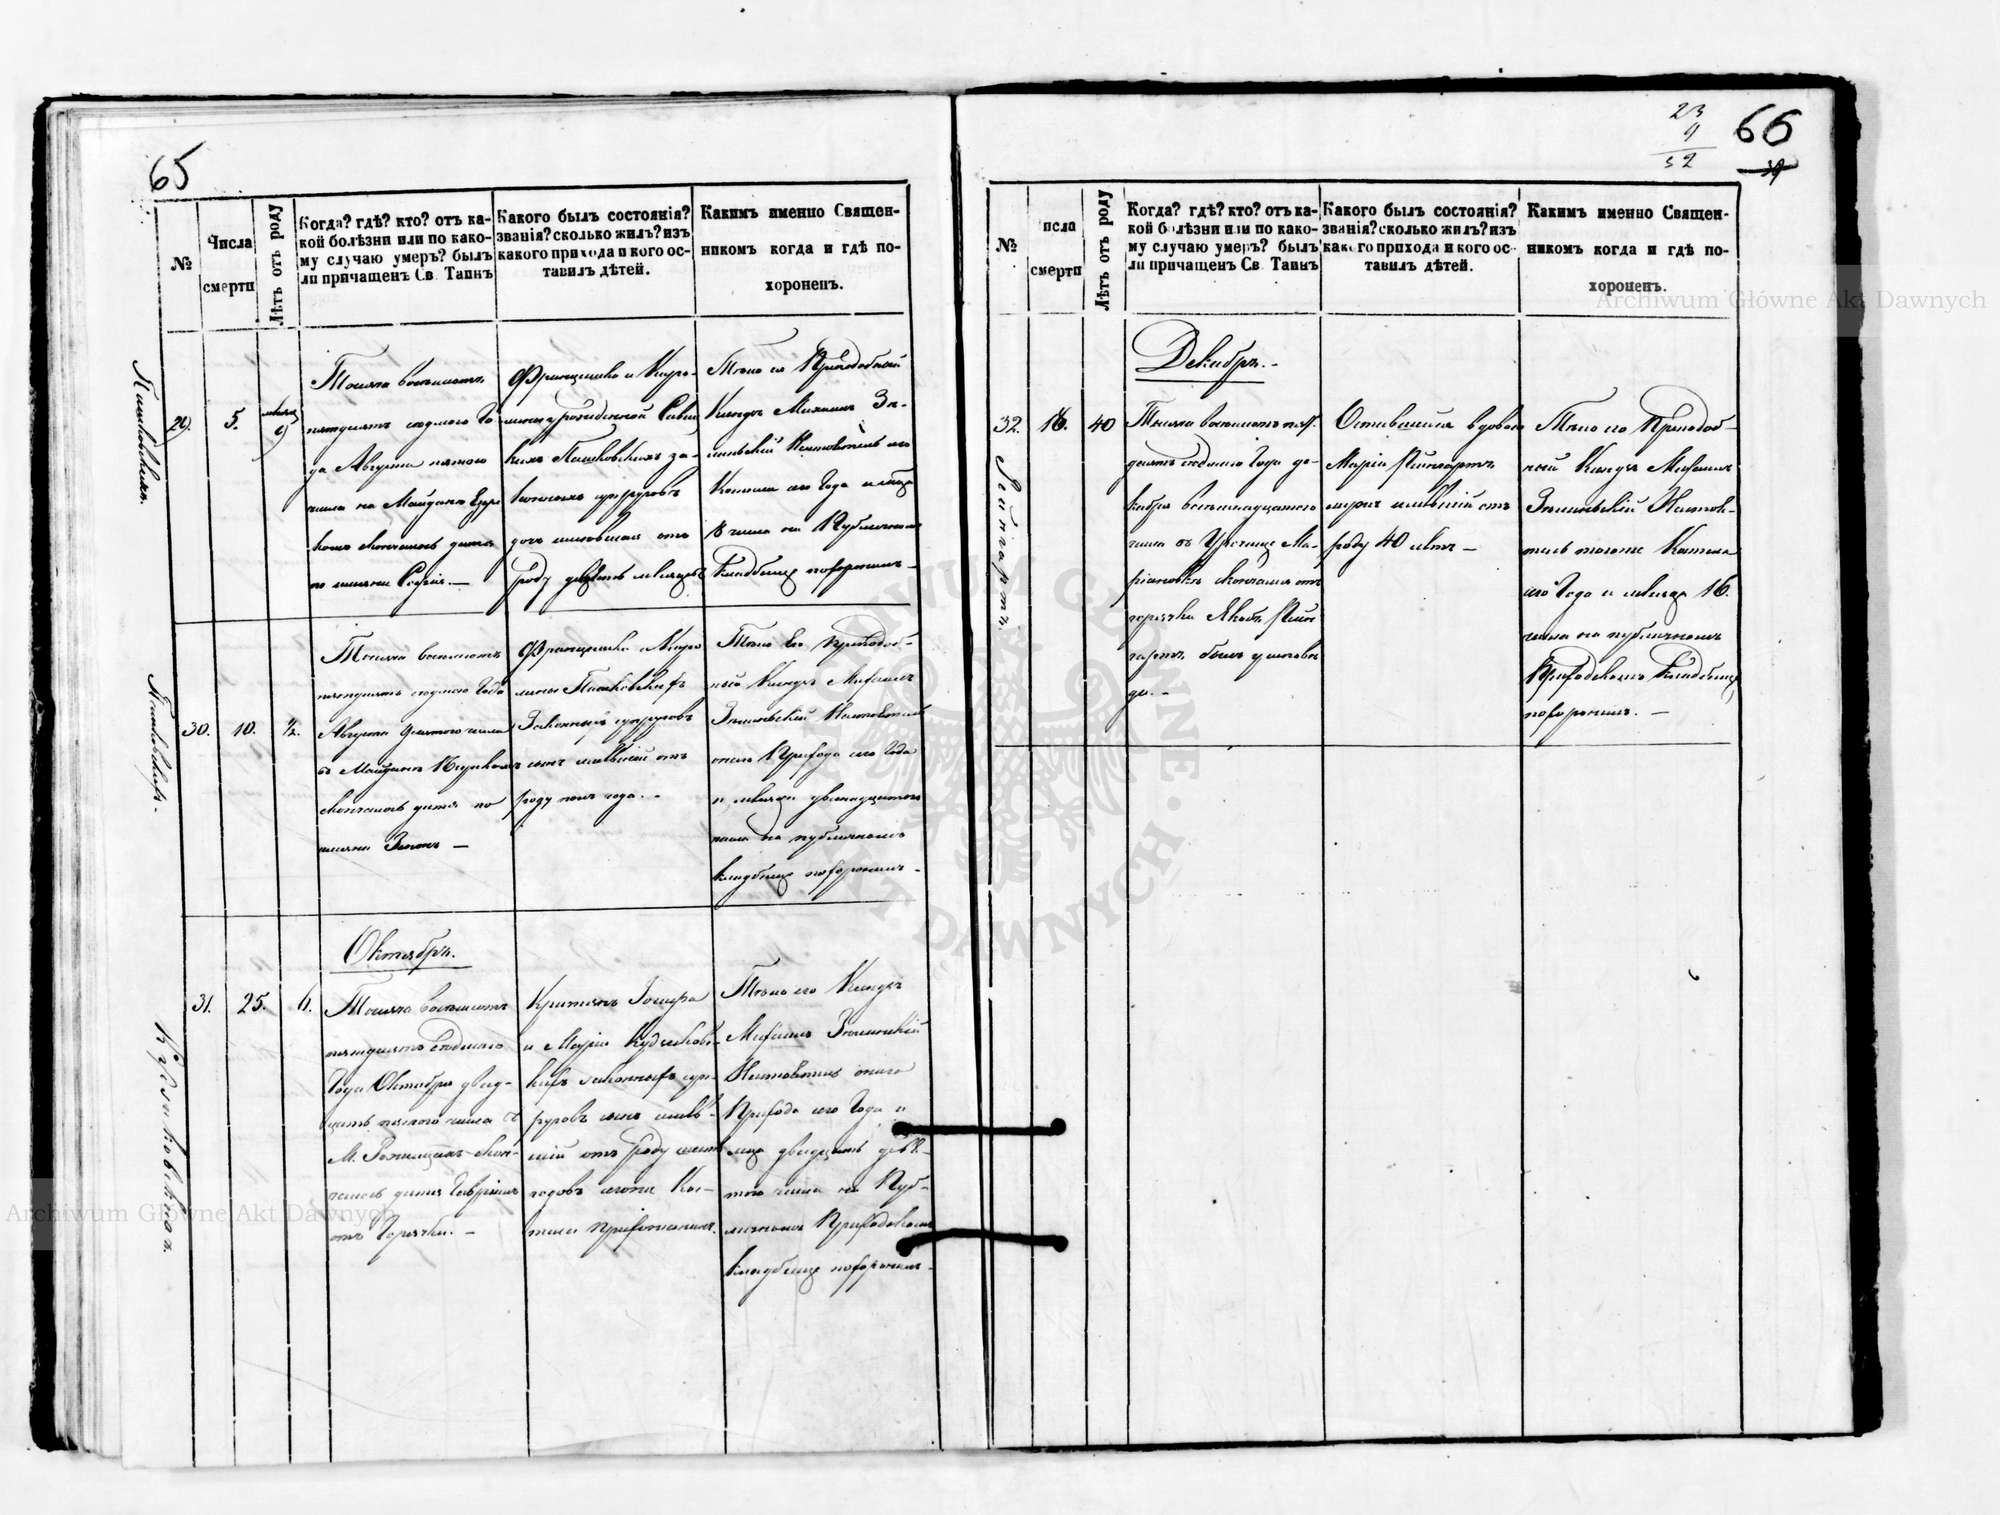 65
№
Числа
смерти
Лѣтъ отъ роду
Когда? гдѣ? кто? отъ ка-
кой болѣзни или по како-
му случаю умеръ? былъ
ли причащенъ Св. Таинъ
Какого былъ состоянія?
званія? сколько жилъ? изъ
какого прихода и кого ос-
тавилъ дѣтей.
Какимъ именно Священ-
никомъ когда и гдѣ по-
хороненъ.
29.
5.
9
Тысяча восемьсотъ
пятдесятъ седмого Го
да Августа пятого
числа на Майданѣ
скончалось дитя
по имени
Францишка и Каро-
лины урожденной
кихъ Пашковскихъ за-
конныхъ супруговъ
дочь имѣвшая отъ
роду девять мѣсяцевъ
Тѣло ея Преподобный
Ксендзъ Михаилъ
Настоятель
Костела сего Года и
8 числа на Публичномъ
Кладбищѣ похоронилъ.
30.
10.
½.
Тысяча восемьсотъ
пятдесятъ седмого Года
Августа десятого числа
въ Майданѣ
скончалось дитя по
имени
Францишка Каро
лины Пашковскихъ
Законныхъ супруговъ
сынъ имѣвшій отъ
роду полъ года.
Тѣло Его Преподоб-
ный Ксендзъ Михаилъ
Настоятель
онаго Прихода сего Года
и мѣсяца двенадцатого
числа на публичномъ
кладбищѣ похоронилъ.
Октябрь.
31.
25.
6.
Тысяча восемьсотъ
пятдесятъ седмого
Года Октября двад-
цать пятого числа въ
М. Рожищахъ скон-
чалось дитя Гавріилъ
отъ Горячки.
и Маріи
кихъ законныхъ суп-
руговъ сынъ имѣв-
шій отъ роду шесть
годовъ сегожъ Кос-
тела прихожанинъ.
Тѣло его Ксендзъ
Михаилъ
Настоятель онаго
Прихода сего Года и
м-ца двадцать девя-
того числа на Пуб-
личномъ Приходскомъ
кладбищѣ похоронилъ.
23
9
32
66
№
исла
смерти
Лѣтъ отъ роду
Когда? гдѣ? кто? отъ ка-
кой болѣзни или по како-
му случаю умеръ? былъ
ли причащенъ Св. Таинъ
Какого былъ состоянія?
званія? сколько жилъ? изъ
какого прихода и кого ос-
тавилъ дѣтей.
Какимъ именно Священ-
никомъ когда и гдѣ по-
хороненъ.
Декабрь.
32.
16.
40
Тысяча восемьсотъ пят-
десятъ седмого Года де-
кабря
числа въ Урочище Ма-
ріановкѣ скончался отъ
горячки Якобъ
былъ у исповѣ
ди.
Оставшаяся вдовою
Марія
мужъ имѣвшій отъ
роду 40 лѣтъ
Тѣло его Преподоб-
ный Ксендзъ Михаилъ
Настоя-
тель тогоже Костела
сего Года и мѣсяца 16.
числа на публичномъ
Приходскомъ Кладбищѣ
похоронилъ.
Archiwum Główne Akt Dawnych
Archiwum Główne Akt Dawnych
ARCHIWUM GŁÓWNE AKT DAWNYCH